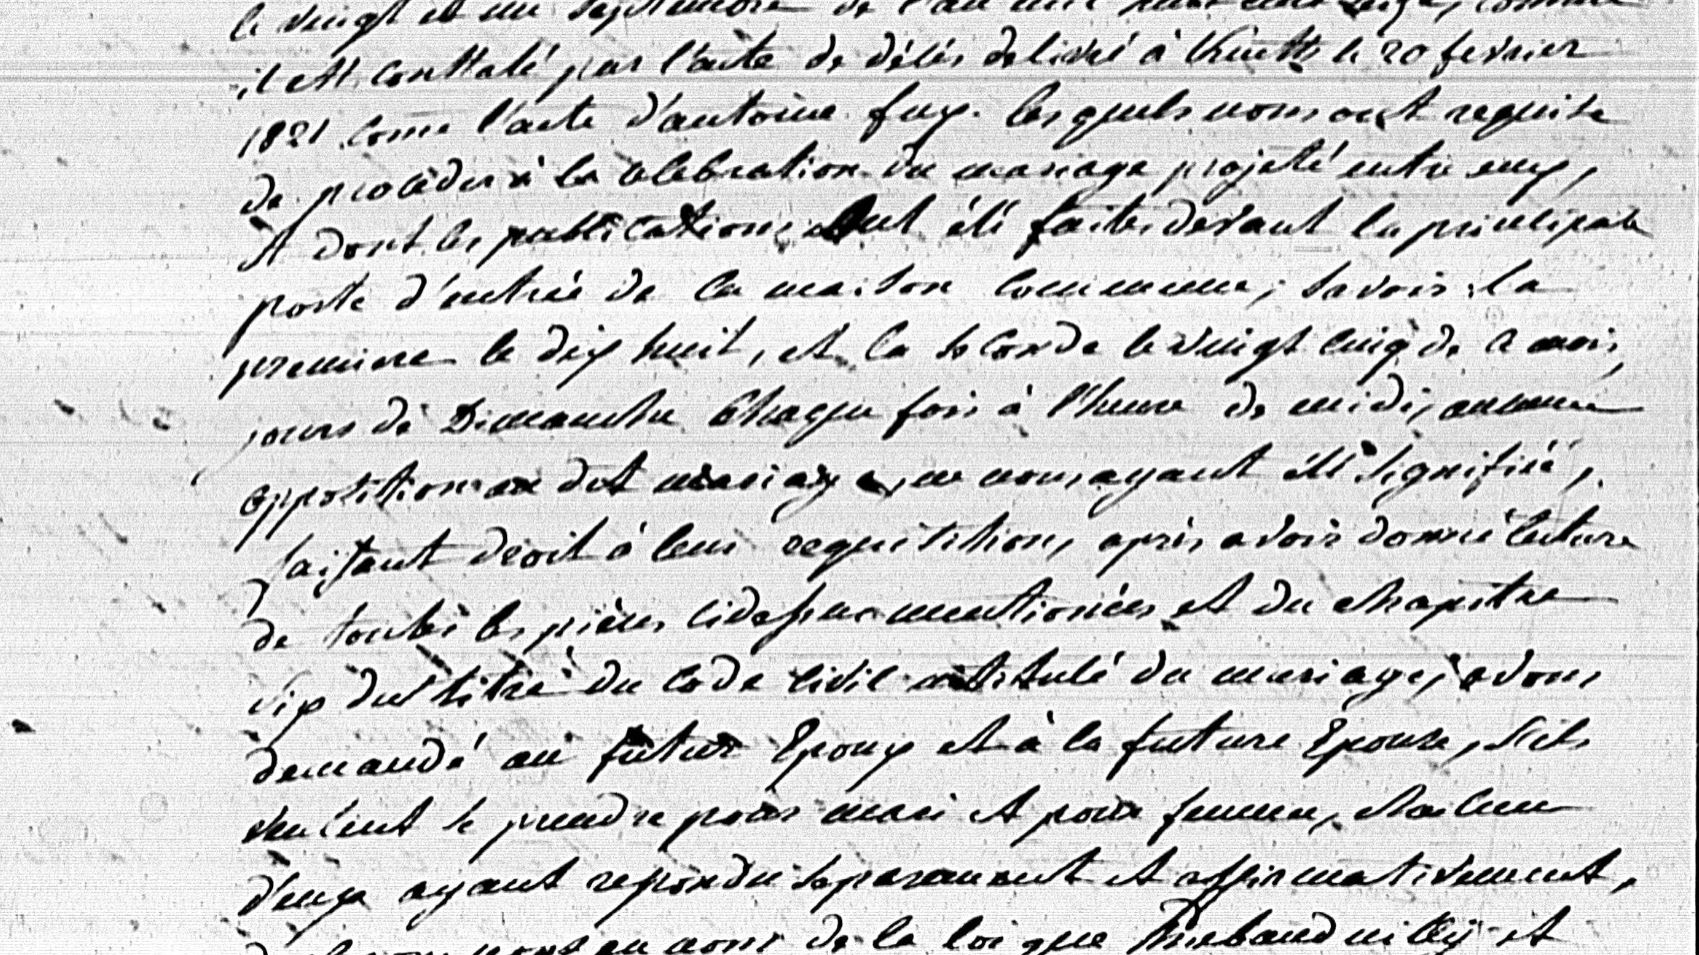 le vingt et un septembre de l'an mil huit cent seize, comme
il est constaté par l'acte de décés delivré à le 20 fevrier
1821 come l'acte d'antoine fux. lesquels nous ont requis
de procéder à la celebration du mariage projeté entre eux,
et dont les publications ont été faites devant la principale
porte d'entrée de la maison commune; savoir: la
premiere le dix huit, et la seconde le vingt cinq de ce mois,
jours de Dimanche chaque fois à l'heure de midi, aucune
opposition au dit mariage, ne nous ayant été signifiée,
faisant droit à leur requisition, après avoir donné lecture
de toutes les pièces cidessus mentionées et du chapitre
six du titre du code civil intitulé du mariage, avons
demandé au futur Epoux et à la future Epouse, s'ils
veulent se prendre pour mari et pour femme, chacun
d'eux ayant repondu separement et affirmativement,
nous au nom de la loi que Thiebaud et